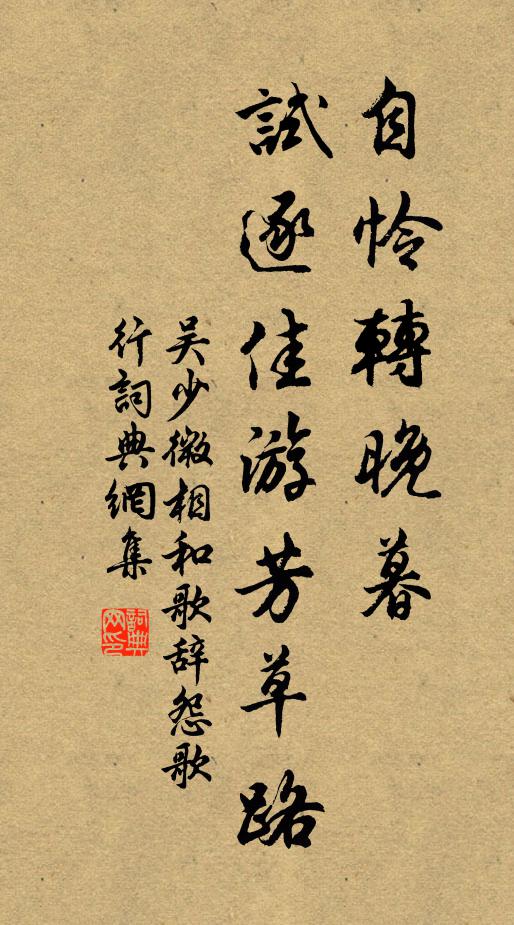 自怜轉晚暮
試逐佳游芳草路
吴少微相和歌辞怨歌
行詞典網集
詞典
网印